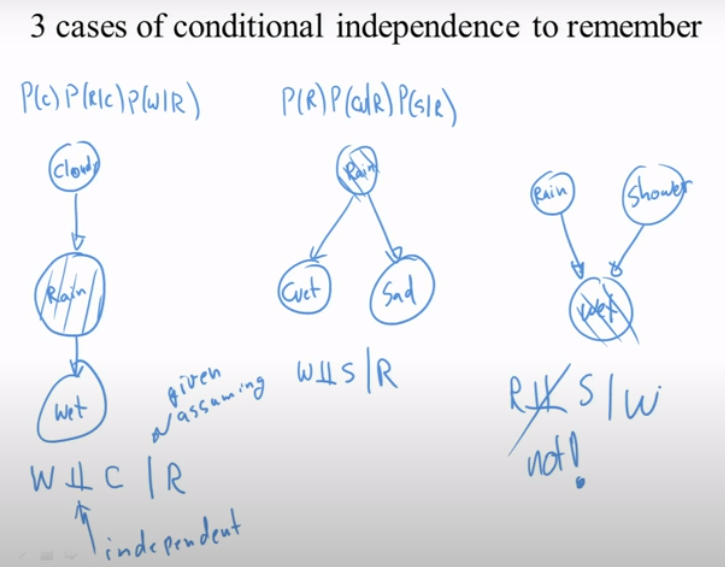 3 cases of conditional independence to remember
P(C) P(R|C) P(W|R)
Cloudy
Rain
Wet
given
assuming
W ⫫ C | R
independent
P(R) P(W|R) P(S|R)
Rain
Wet
Sad
W ⫫ S | R
Rain
Shower
Wet
R ⫫̸ S | W
not!